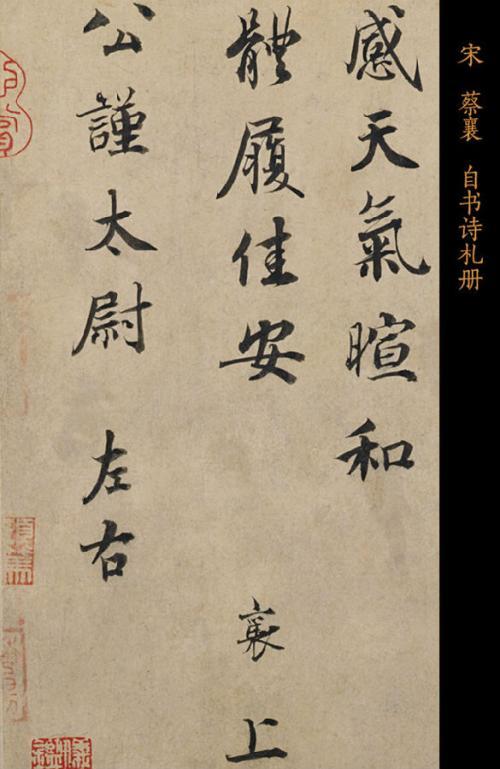 宋 蔡襄 自书诗札册
感天氣暄和
體履佳安 襄上
公謹太尉 左右